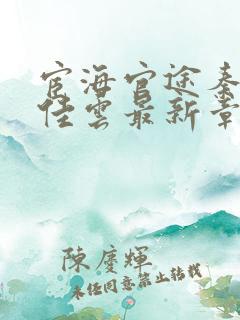 宦海官途秦
佳雲最新章
陳慶輝
未经同意禁止转载